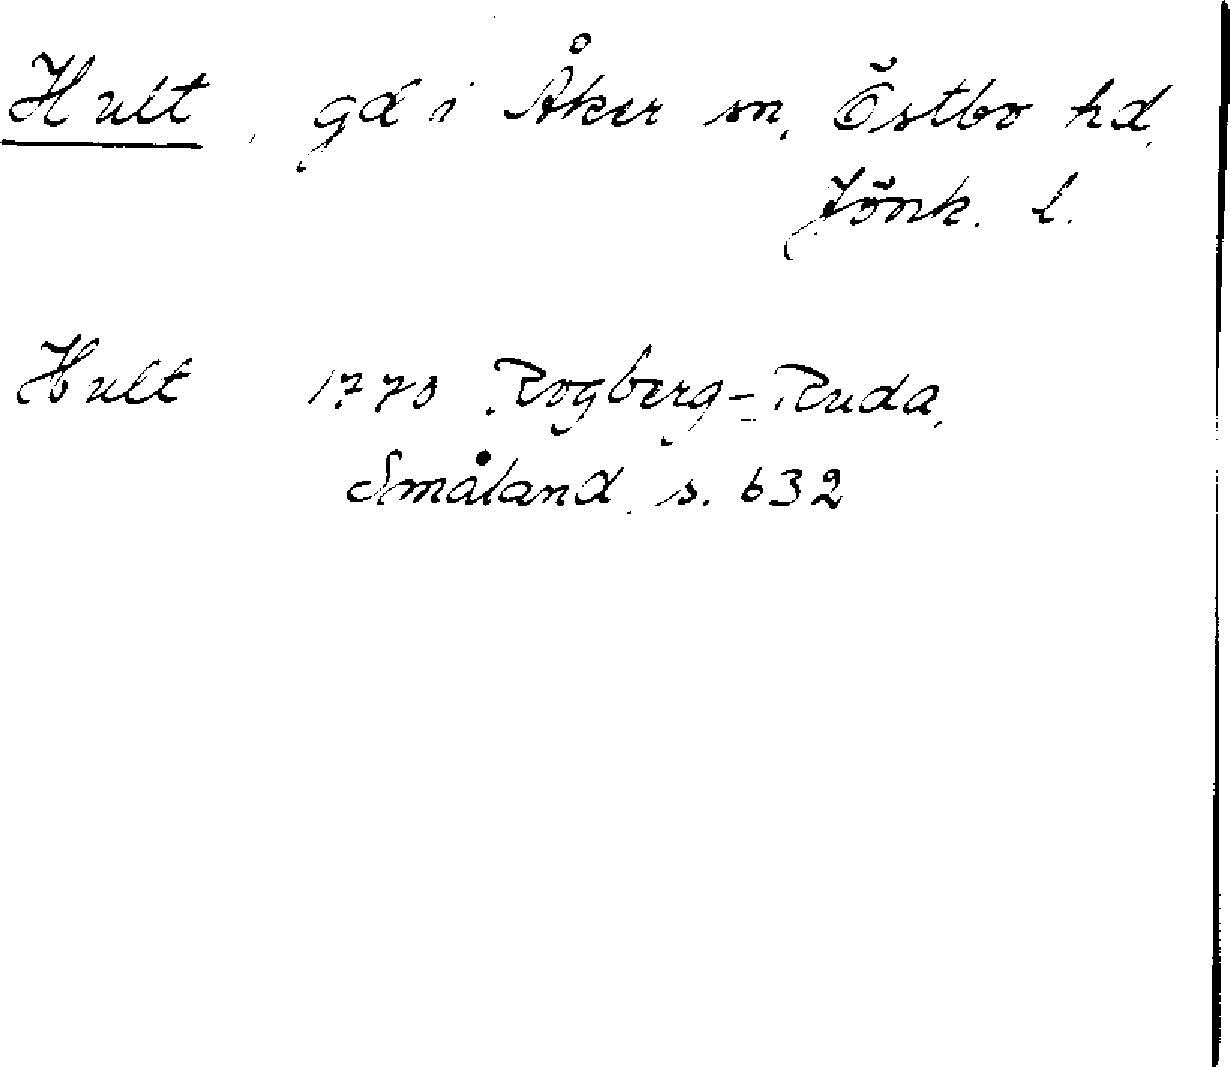 Hult, gd i Åker sn, Östbo hd,
Jönk. l.
Hult 1770 Rogberg-Ruda,
Småland s. 632